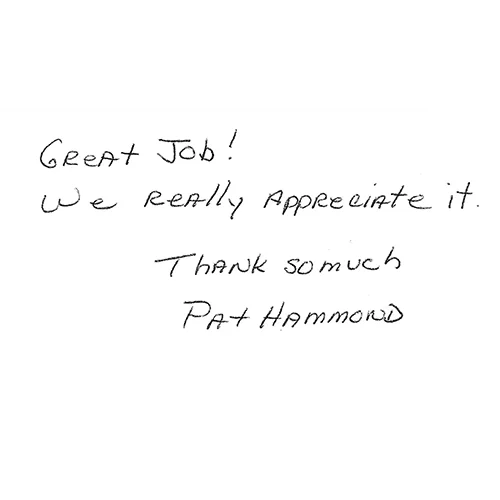 Great Job!
We really appreciate it.
Thank somuch
Pat Hammond